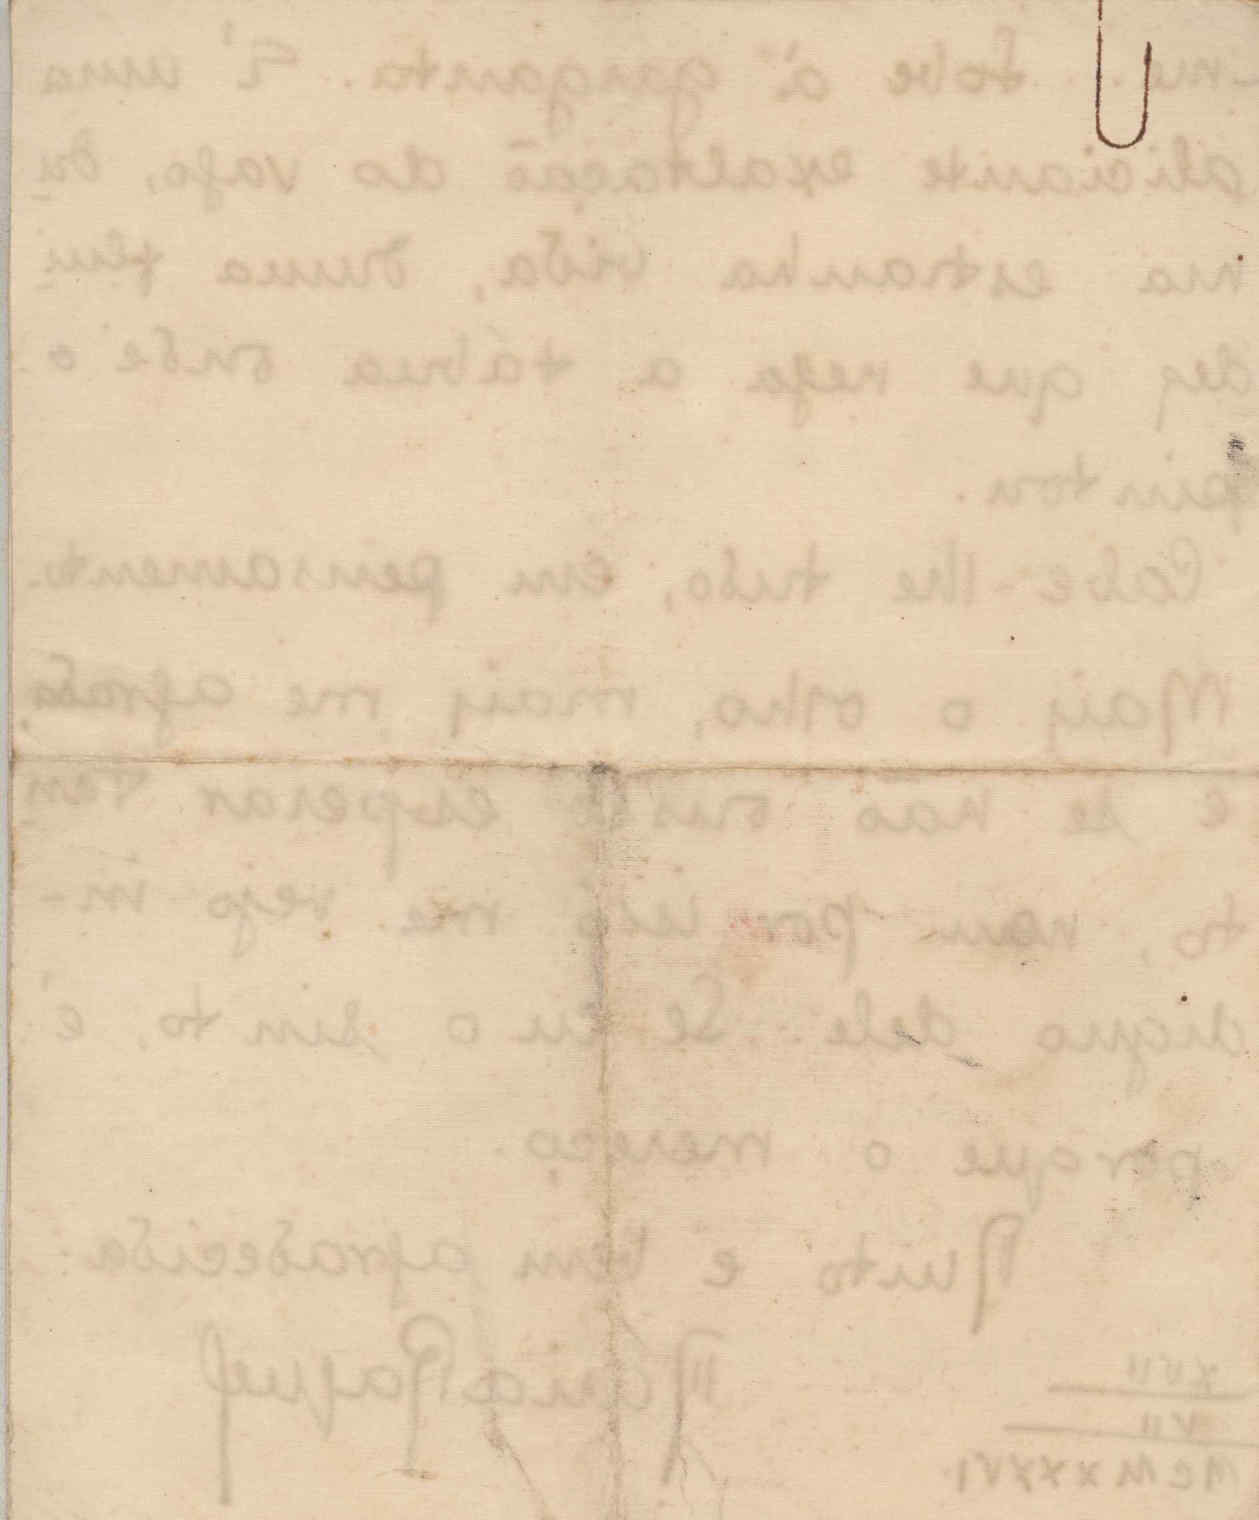 me... sobe à garganta. É uma
aliciante exaltação do vago, du
ma estranha vida, duma flui
dez que nega a tábua onde o
pintou.
Cabe-lhe tudo, em pensamento.
Mais o olho, mais me agrada,
e se não ouso esperar tan
to, nem por isso me vejo in-
digno dele. Se eu o sinto, é
porque o mereço.
Muito e bem agradecida
Maria Raquel
XVII
VII
MCMXXXVI